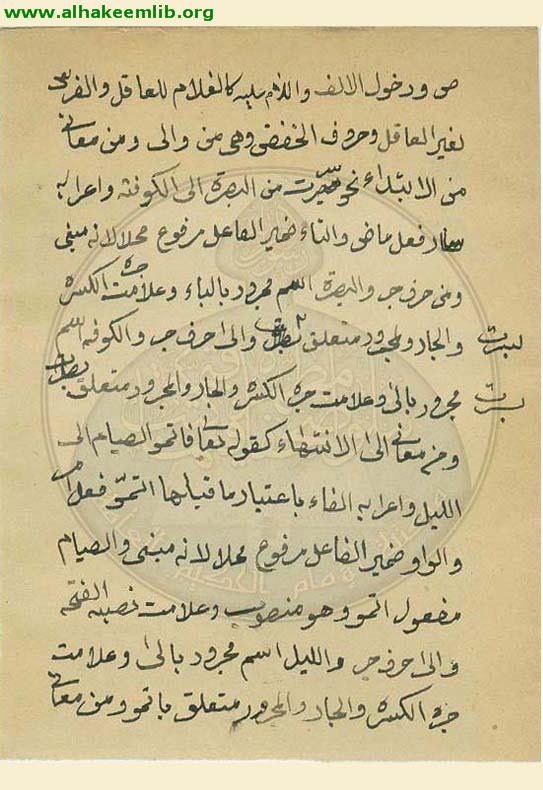 www.alhakeemlib.org
ص ودخول الالف واللام عليه كالغلام للعاقل والفرس
لغير العاقل وحروف الخفض وهى من والى ومن معانى
من الابتداء نحو سرت من البصرة الى الكوفة واعرابه
سار فعل ماض والتاء ضمير الفاعل مرفوع محلا لانه مبنى
ومن حرف جر والبصرة اسم مجرور بالباء وعلامت جره الكسرة
والجار والمجرور متعلق والى حرف جر والكوفه اسم
بسرت
مجرور بالى وعلامت جره الكسره والجار والمجرور متعلق
بسرت
ومن معانى الى الانتهاء كقوله تعالى فاتمو الصيام الى
الليل واعرابه الفاء باعتبار ما قبلها اتمو فعل امر
والواو ضمير الفاعل مرفوع محلا لانه مبنى والصيام
مفعول اتمو وهو منصوب وعلامت نصبه الفتحه
والى حرف جر والليل اسم مجرور بالى وعلامت
جره الكسره والجار والمجرور متعلق باتمو ومن معانى